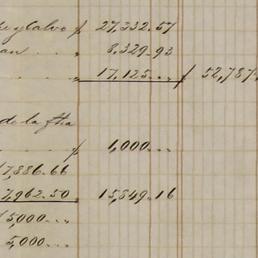 y Calvo $ 27,332.57
an . . . " 8,329.93
. . . " 17,125 . . . $ 52,787
de la fha
. $ 1,000 . . .
7,886.66
7,962.50 15,849.16
5,000 . . .
5,000 . . .